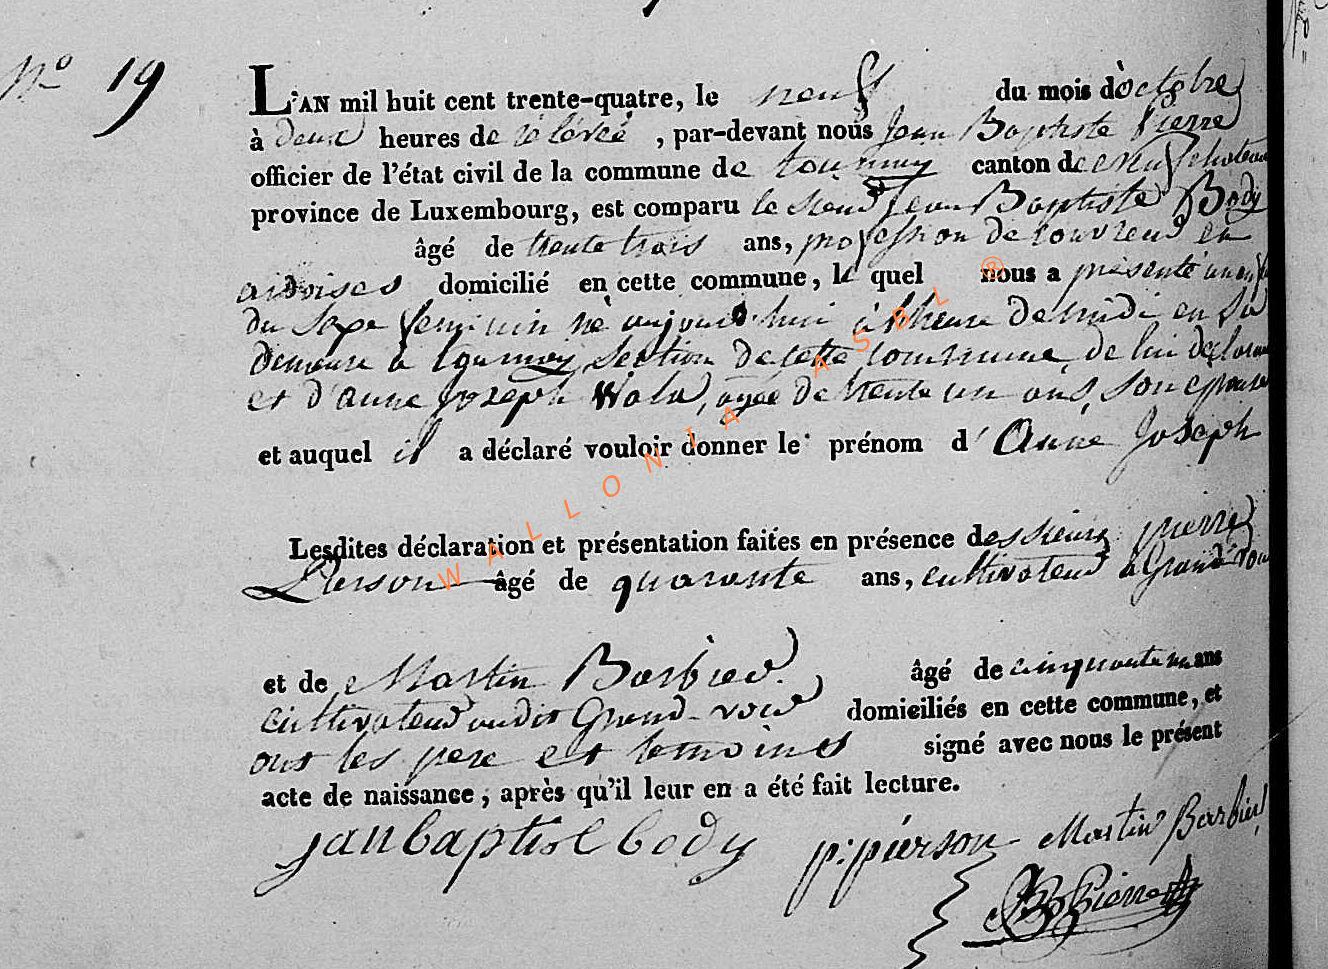 N° 19
L'AN mil huit cent trente-quatre, le neuf du mois d'octobre
à deux heures de relevée, par-devant nous Jean Baptiste Pierre
officier de l'état civil de la commune de tournay canton de neufchateau
province de Luxembourg, est comparu le sieur Jean Baptiste Body
âgé de trente trois ans, profession de couvreur en
ardoises domicilié en cette commune, lequel nous a présenté un enfant
du sexe feminin né aujourd'hui à l'heure de midi en sa
demeure à tournay section de cette commune de lui déclarant
et d'anne Joseph agée de trente un ans, son epouse
et auquel il a déclaré vouloir donner le prénom d'Anne Joseph
Lesdites déclaration et présentation faites en présence des sieurs pierre
Pierson âgé de quarante ans, cultivateur à Grand-voir
et de Martin Barbier âgé de cinquante un ans
cultivateur audit Grand-voir domiciliés en cette commune, et
ont les pere et temoins signé avec nous le présent
acte de naissance, après qu'il leur en a été fait lecture.
jan baptist body p: pierson Martin Barbier
JB Pierre
WALLONIA ASBL ®